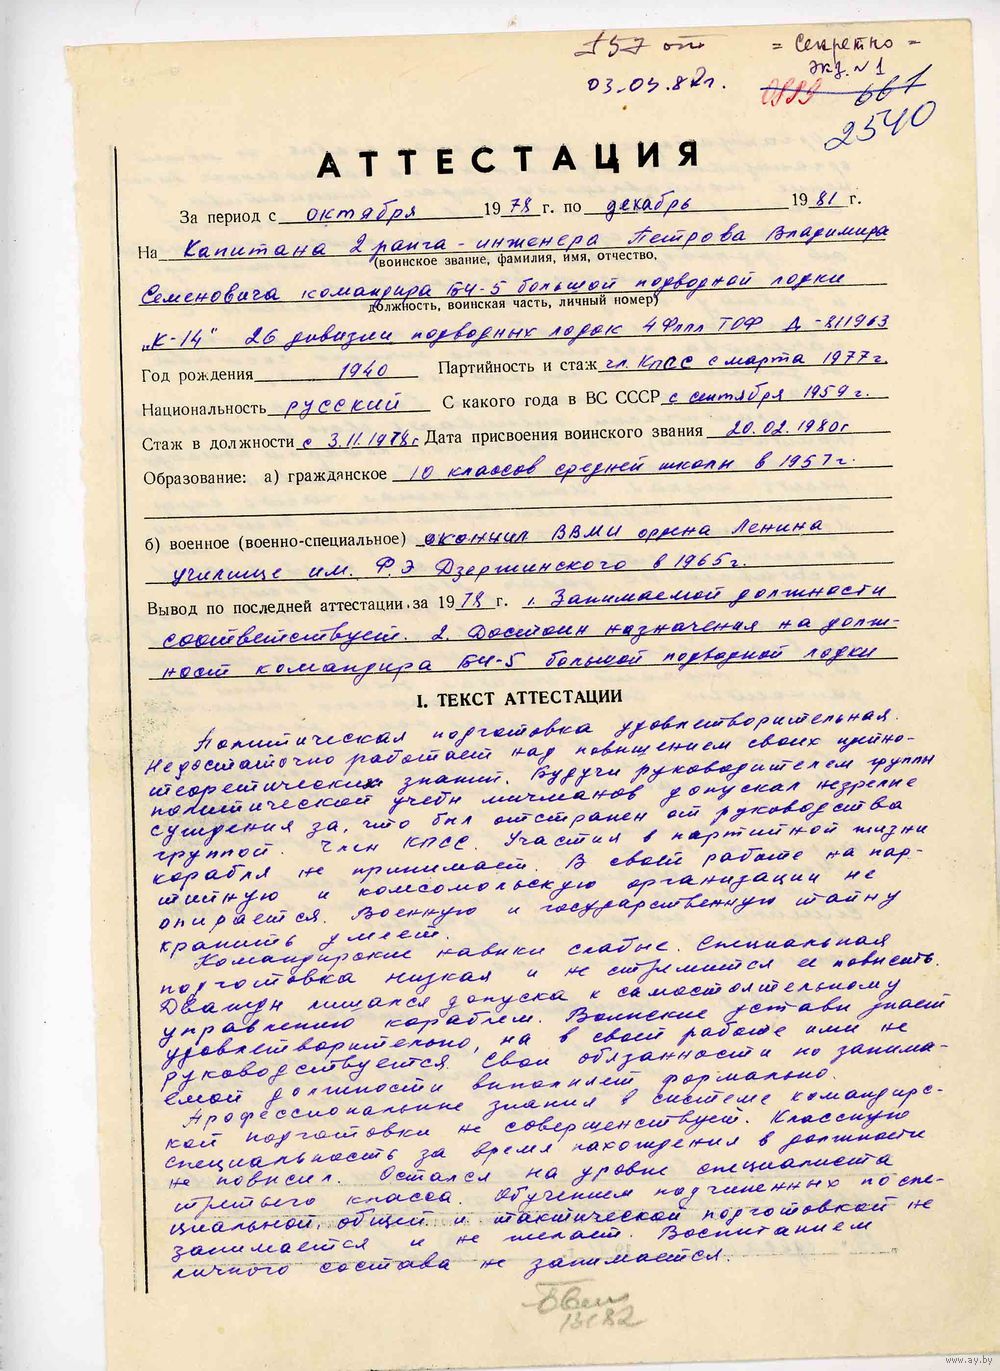 157 от = Секретно =
03.03.82г. Экз. №1
0999 661
2540
АТТЕСТАЦИЯ
За период с октября 1978 г. по декабрь 1981 г.
На Капитана 2 ранга - инженера Петрова Владимира
(воинское звание, фамилия, имя, отчество,
Семеновича командира БЧ-5 большой подводной лодки
должность, воинская часть, личный номер)
„К-14" 26 дивизии подводных лодок 4 Флпл ТОФ Д-811963
Год рождения 1940 Партийность и стаж чл. КПСС с марта 1977г.
Национальность русский С какого года в ВС СССР с сентября 1959 г.
Стаж в должности с 3.11.1978г Дата присвоения воинского звания 20.02.1980г
Образование: а) гражданское 10 классов средней школы в 1957г.
б) военное (военно-специальное) окончил ВВМИ ордена Ленина
училище им. Ф.Э Дзержинского в 1965г.
Вывод по последней аттестации за 1978 г. 1. Занимаемой должности
соответствует. 2. Достоин назначения на долж-
ность командира БЧ-5 большой подводной лодки
I. ТЕКСТ АТТЕСТАЦИИ
Политическая подготовка удовлетворительная.
Недостаточно работает над повышением своих идейно-
теоретических знаний. Будучи руководителем группы
политической учебы мичманов допускал незрелые
суждения за, что был отстранен от руководства
группой. Член КПСС. Участия в партийной жизни
корабля не принимает. В своей работе на пар-
тийную и комсомольскую организации не
опирается. Военную и государственную тайну
хранить умеет.
Командирские навыки слабые. Специальная
подготовка низкая и не стремится ее повысить.
Дважды лишался допуска к самостоятельному
управлению кораблем. Воинские уставы знает
удовлетворительно, но в своей работе ими не
руководствуется. Свои обязанности по занима-
емой должности выполняет формально.
Профессиональные знания в системе командирс-
кой подготовки не совершенствует. Классную
специальность за время нахождения в должности
не повысил. Остался на уровне специалиста
третьего класса. Обучением подчиненных по спе-
циальной, общей и тактической подготовкой не
занимается и не желает. Воспитанием
личного состава не занимается.
www.ay.by